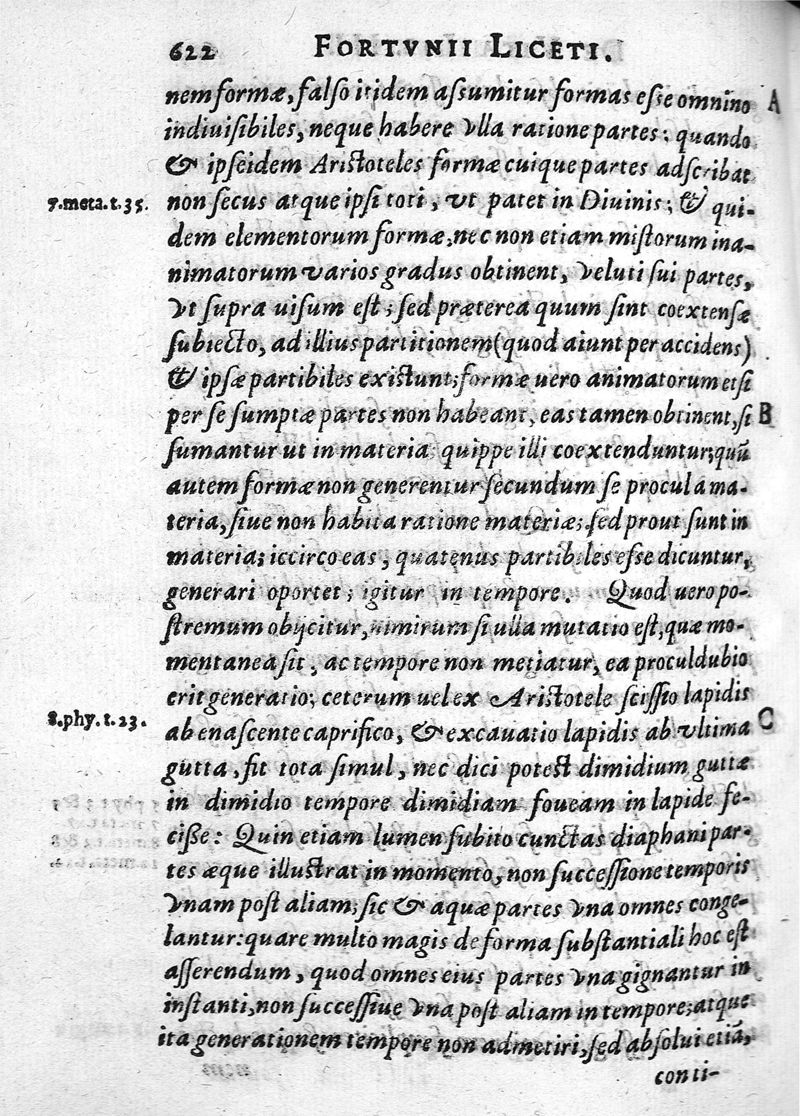 622 FORTVNII LICETI.
nem formæ, falso itidem assumitur formas esse omnino A
indiuisibiles, neque habere vlla ratione partes: quando
& ipseidem Aristoteles formæ cuique partes adscribat
7.meta.t.35. non secus atque ipsi toti, vt patet in Diuinis; & qui-
dem elementorum formæ, nec non etiam mistorum ina-
nimatorum varios gradus obtinent, veluti sui partes,
vt supra uisum est; sed præterea quum sint coextensæ
subiecto, ad illius partitionem (quod aiunt per accidens)
& ipsæ partibiles existunt; formæ uero animatorum etsi
per se sumptæ partes non habeant, eas tamen obtinent, si B
sumantur ut in materia quippe illi coextenduntur; quũ
autem formæ non generentur secundum se procul á ma-
teria, siue non habita ratione materiæ; sed prout sunt in
materia; iccirco eas, quatenus partibiles esse dicuntur,
generari oportet; igitur in tempore. Quod uero po-
stremum obijcitur, nimirum si ulla mutatio est, quæ mo-
mentanea sit, ac tempore non metiatur, ea proculdubio
erit generatio; ceterum uel ex Aristotele scissio lapidis
8.phy.t.23. ab enascente caprifico, & excauatio lapidis ab vltima C
gutta, fit tota simul, nec dici potest dimidium guttæ
in dimidio tempore dimidiam foueam in lapide fe-
cisse: Quin etiam lumen subito cunctas diaphani par-
tes æque illustrat in momento, non successione temporis
vnam post aliam; sic & aquæ partes vna omnes conge-
lantur: quare multo magis de forma substantiali hoc est
asserendum, quod omnes eius partes vna gignantur in
instanti, non successiue vna post aliam in tempore; atque
ita generationem tempore non admetiri, sed absolui etiã,
conti-